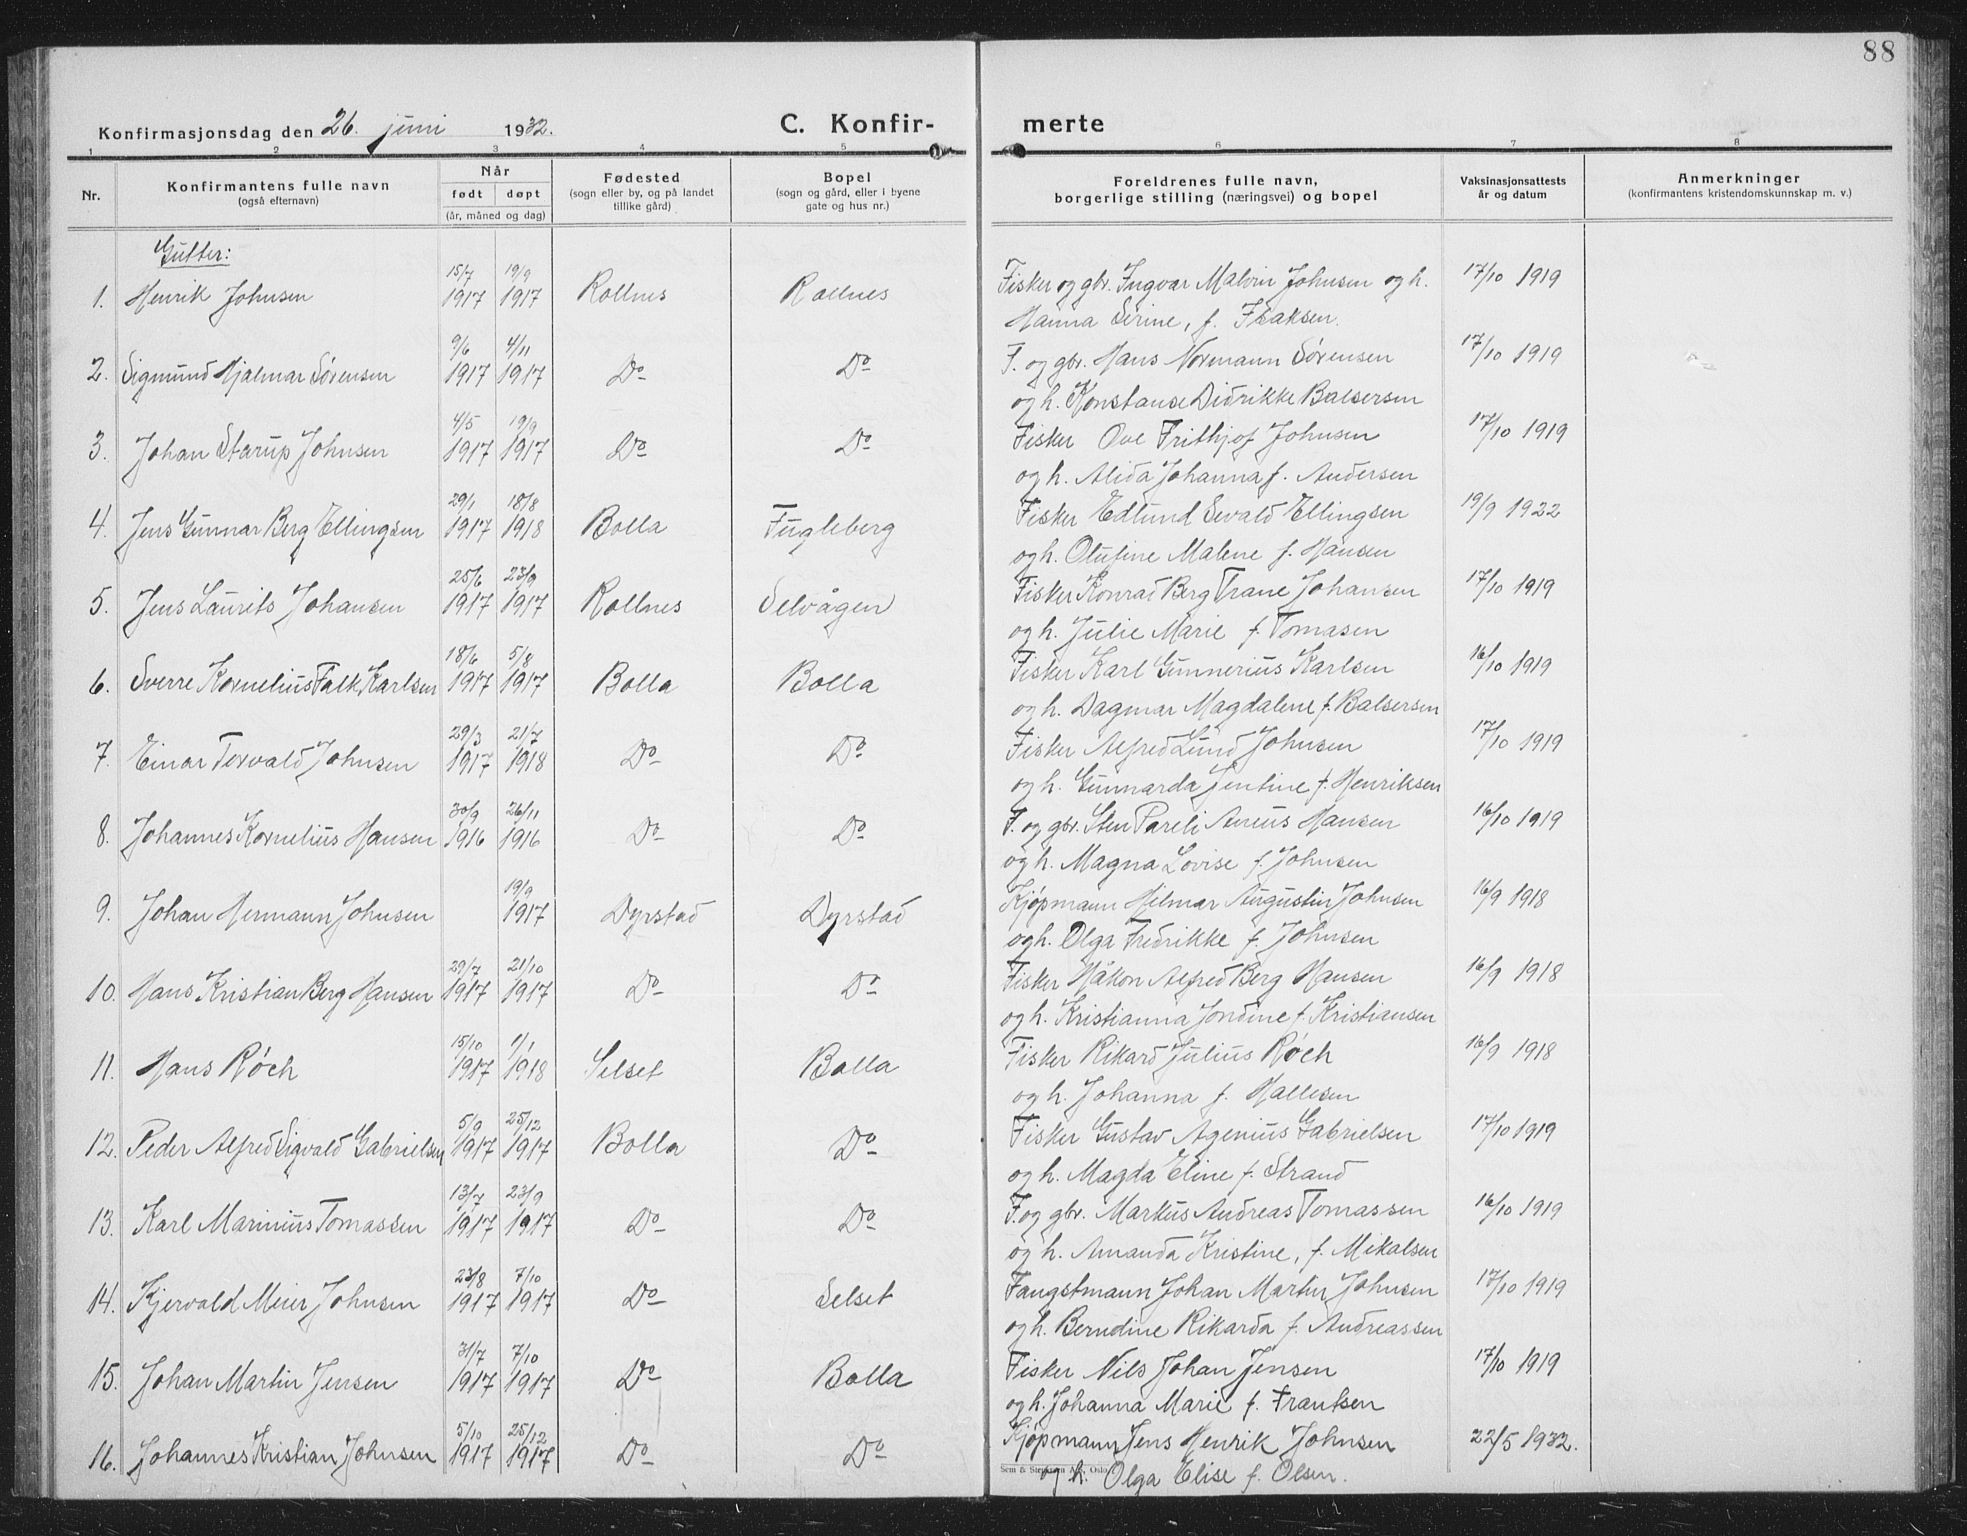 88
Konfirmasjonsdag den 26. juni 1932. C. Konfir- merte
1 2 3 4 5 6 7 8
Nr. Konfirmantens fulle navn (også efternavn) Når født døpt (år, måned og dag) Fødested (sogn eller by, og på landet tillike gård) Bopel (sogn og gård, eller i byene gate og hus nr.) Foreldrenes fulle navn, borgerlige stilling (næringsvei) og bopel Vaksinasjonsattests år og datum Anmerkninger (konfirmantens kristendomskunnskap m. v.)
Gutter:
1. Henrik Johnsen 15/7 1917 19/9 1917 Rollnes Rollnes Fisker og gbr. Ingvar Malvin Johnsen og h. 17/10 1919
Hanna Serine, f. Isaksen.
2. Sigmund Hjalmar Sørensen 9/6 1917 4/11 1917 Do Do F. og gbr. Hans Normann Sørensen 17/10 1919
og h. Konstanse Didrikke Balsersen
3. Johan Starup Johnsen 4/5 1917 19/9 1917 Do Do Fisker Ove Frithjof Johnsen 17/10 1919
og h. Alida Johanna f. Andersen
4. Jens Gunnar Berg Ellingsen 29/1 1917 18/8 1918 Bolla Fugleberg Fisker Edlund Sevald Ellingsen 19/9 1922
og h. Olufine Malene f. Hansen
5. Jens Laurits Johansen 25/6 1917 23/9 1917 Rollnes Selvågen Fisker Konrad Berg Trane Johansen 17/10 1919
og h. Julie Marie f. Tomasen
6. Sverre Kornelius Falk Karlsen 18/6 1917 5/8 1917 Bolla Bolla Fisker Karl Gunnerius Karlsen 16/10 1919
og h. Dagmar Magdalene f. Balsersen
7. Einar Torvald Johnsen 29/3 1917 21/7 1918 Do Do Fisker Alfred Lund Johnsen 17/10 1919
og h. Gunnarda Jentine f. Henriksen
8. Johannes Kornelius Hansen 30/9 1916 26/11 1916 Do Do F. og gbr. Sten Pareli Hansen 16/10 1919
og h. Magna Lovise f. Johnsen
9. Johan Hermann Johnsen 19/9 1917 Dyrstad Dyrstad Kjøpmann Hilmar Augustin Johnsen 16/9 1918
og h. Olga Fredrikke f. Johnsen
10. Hans Kristian Berg Hansen 29/7 1917 21/10 1917 Do Do Fisker Håkon Alfred Berg Hansen 16/9 1918
og h. Kristianna Jordine f. Kristiansen
11. Hans Røch 15/10 1917 1/1 1918 Selset Bolla Fisker Rikard Julius Røch 16/9 1918
og h. Johanna f. Hallesen
12. Peder Alfred Sigvald Gabrielsen 5/9 1917 25/12 1917 Bolla Do Fisker Gustav Agenius Gabrielsen 17/10 1919
og h. Magda Eline f. Strand
13. Karl Marinius Tomassen 13/7 1917 23/9 1917 Do Do F. og gbr. Markus Andreas Tomassen 16/10 1919
og h. Amanda Kristine, f. Mikalsen
14. Kjervald Meier Johnsen 23/8 1917 7/10 1917 Do Selset Fangstmann Johan Martin Johnsen 17/10 1919
og h. Berndine Rikarda f. Andreassen
15. Johan Martin Jensen 31/7 1917 7/10 1917 Do Bolla Fisker Nils Johan Jensen 17/10 1919
og h. Johanna Marie f. Frantsen
16. Johannes Kristian Johnsen 5/10 1917 25/12 1917 Do Do Kjøpmann Jens Henrik Johnsen 22/5 1932.
og h. Olga Elise f. Olsen.
Sem &